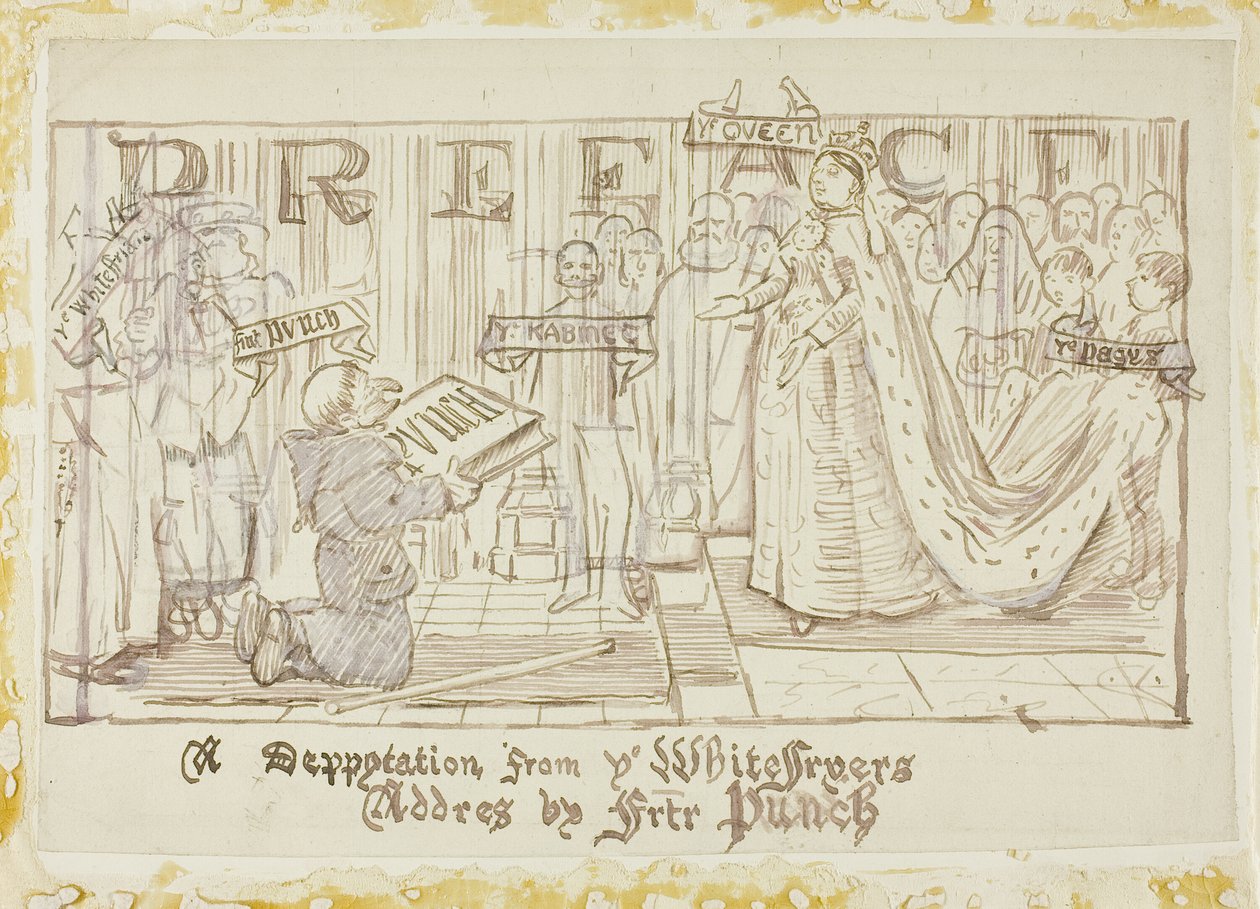 PREFACE
Ye QVEEN
Ye Whitefriars
frat PVNCH
Ye KABINEC
Ye Pages
PVNCH
A Deppytation from ye Whitefryers
Addres by Frtr Punch